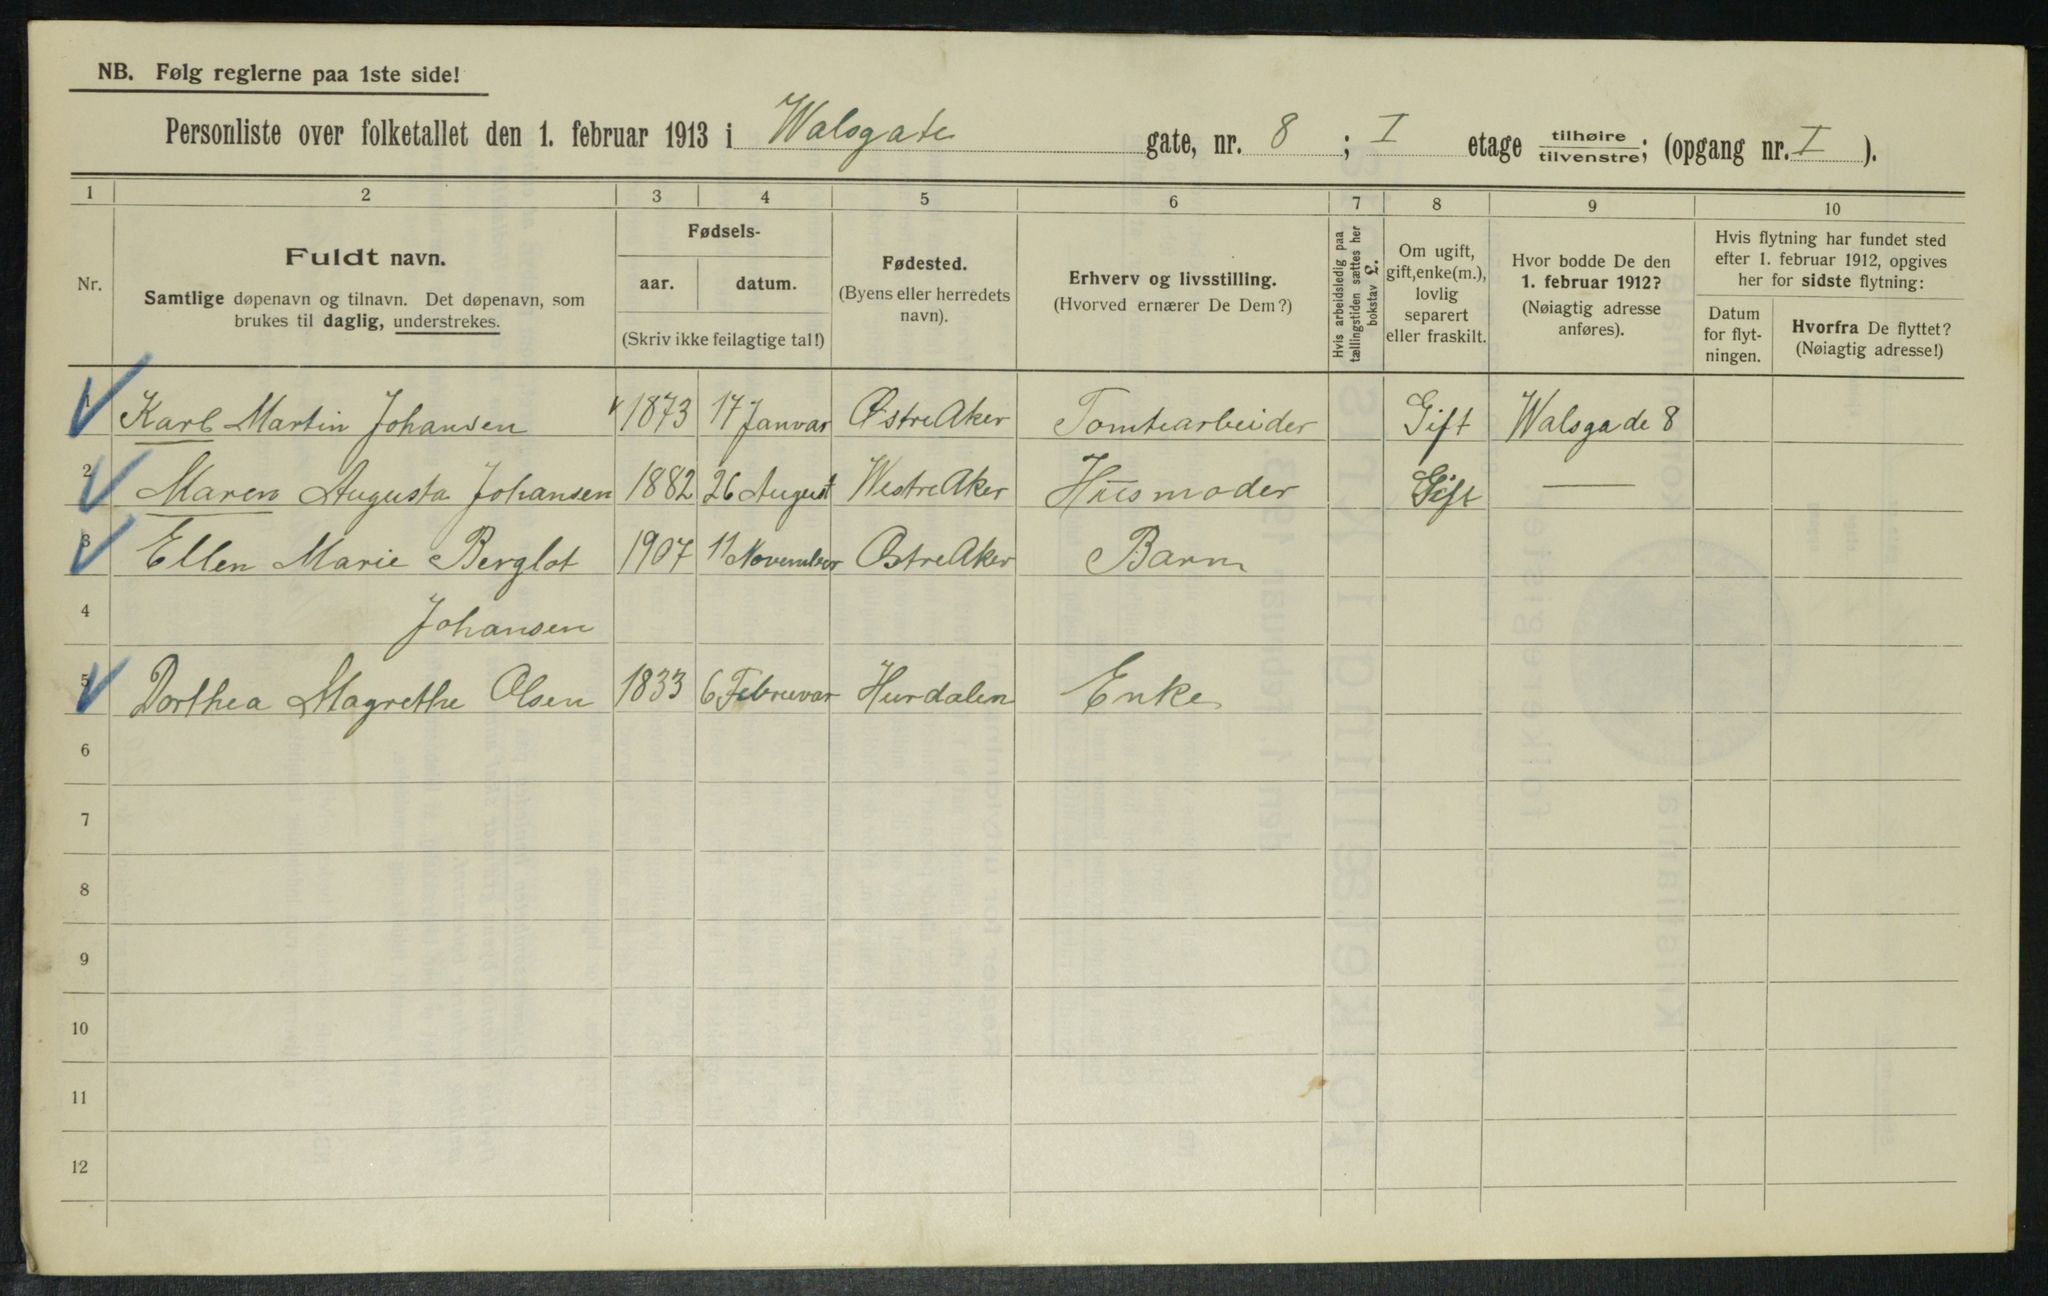 NB. Følg reglerne paa 1ste side!
Personliste over folketallet den 1. februar 1913 i Walsgate gate, nr. 8 ; I etage tilhøire tilvenstre; (opgang nr. I ).
1 2 3 4 5 6 7 8 9 10
Nr.
Fuldt navn.
Samtlige døpenavn og tilnavn. Det døpenavn, som
brukes til daglig, understrekes.
Fødsels-
aar. datum.
(Skriv ikke feilagtige tal!)
Fødested.
(Byens eller herredets
navn).
Erhverv og livsstilling.
(Hvorved ernærer De Dem?)
Hvis arbeidsledig paa
tællingstiden sættes her
bokstav £.
Om ugift,
gift, enke(m.),
lovlig
separert
eller fraskilt.
Hvor bodde De den
1. februar 1912?
(Nøiagtig adresse
anføres).
Hvis flytning har fundet sted
efter 1. februar 1912, opgives
her for sidste flytning:
Datum
for flyt-
ningen.
Hvorfra De flyttet?
(Nøiagtig adresse!)
1 Karl Martin Johansen 1873 17 Januar Østre Aker Tomtearbeider Gift Walsgade 8
2 Maren Augusta Johansen 1882 26 August Westre Aker Husmoder Gift —
3 Ellen Marie Berglot 1907 11 November Østre Aker Barn
4 Johansen
5 Dorthea Magrethe Olsen 1833 6 Februar Hurdalen Enke
6
7
8
9
10
11
12